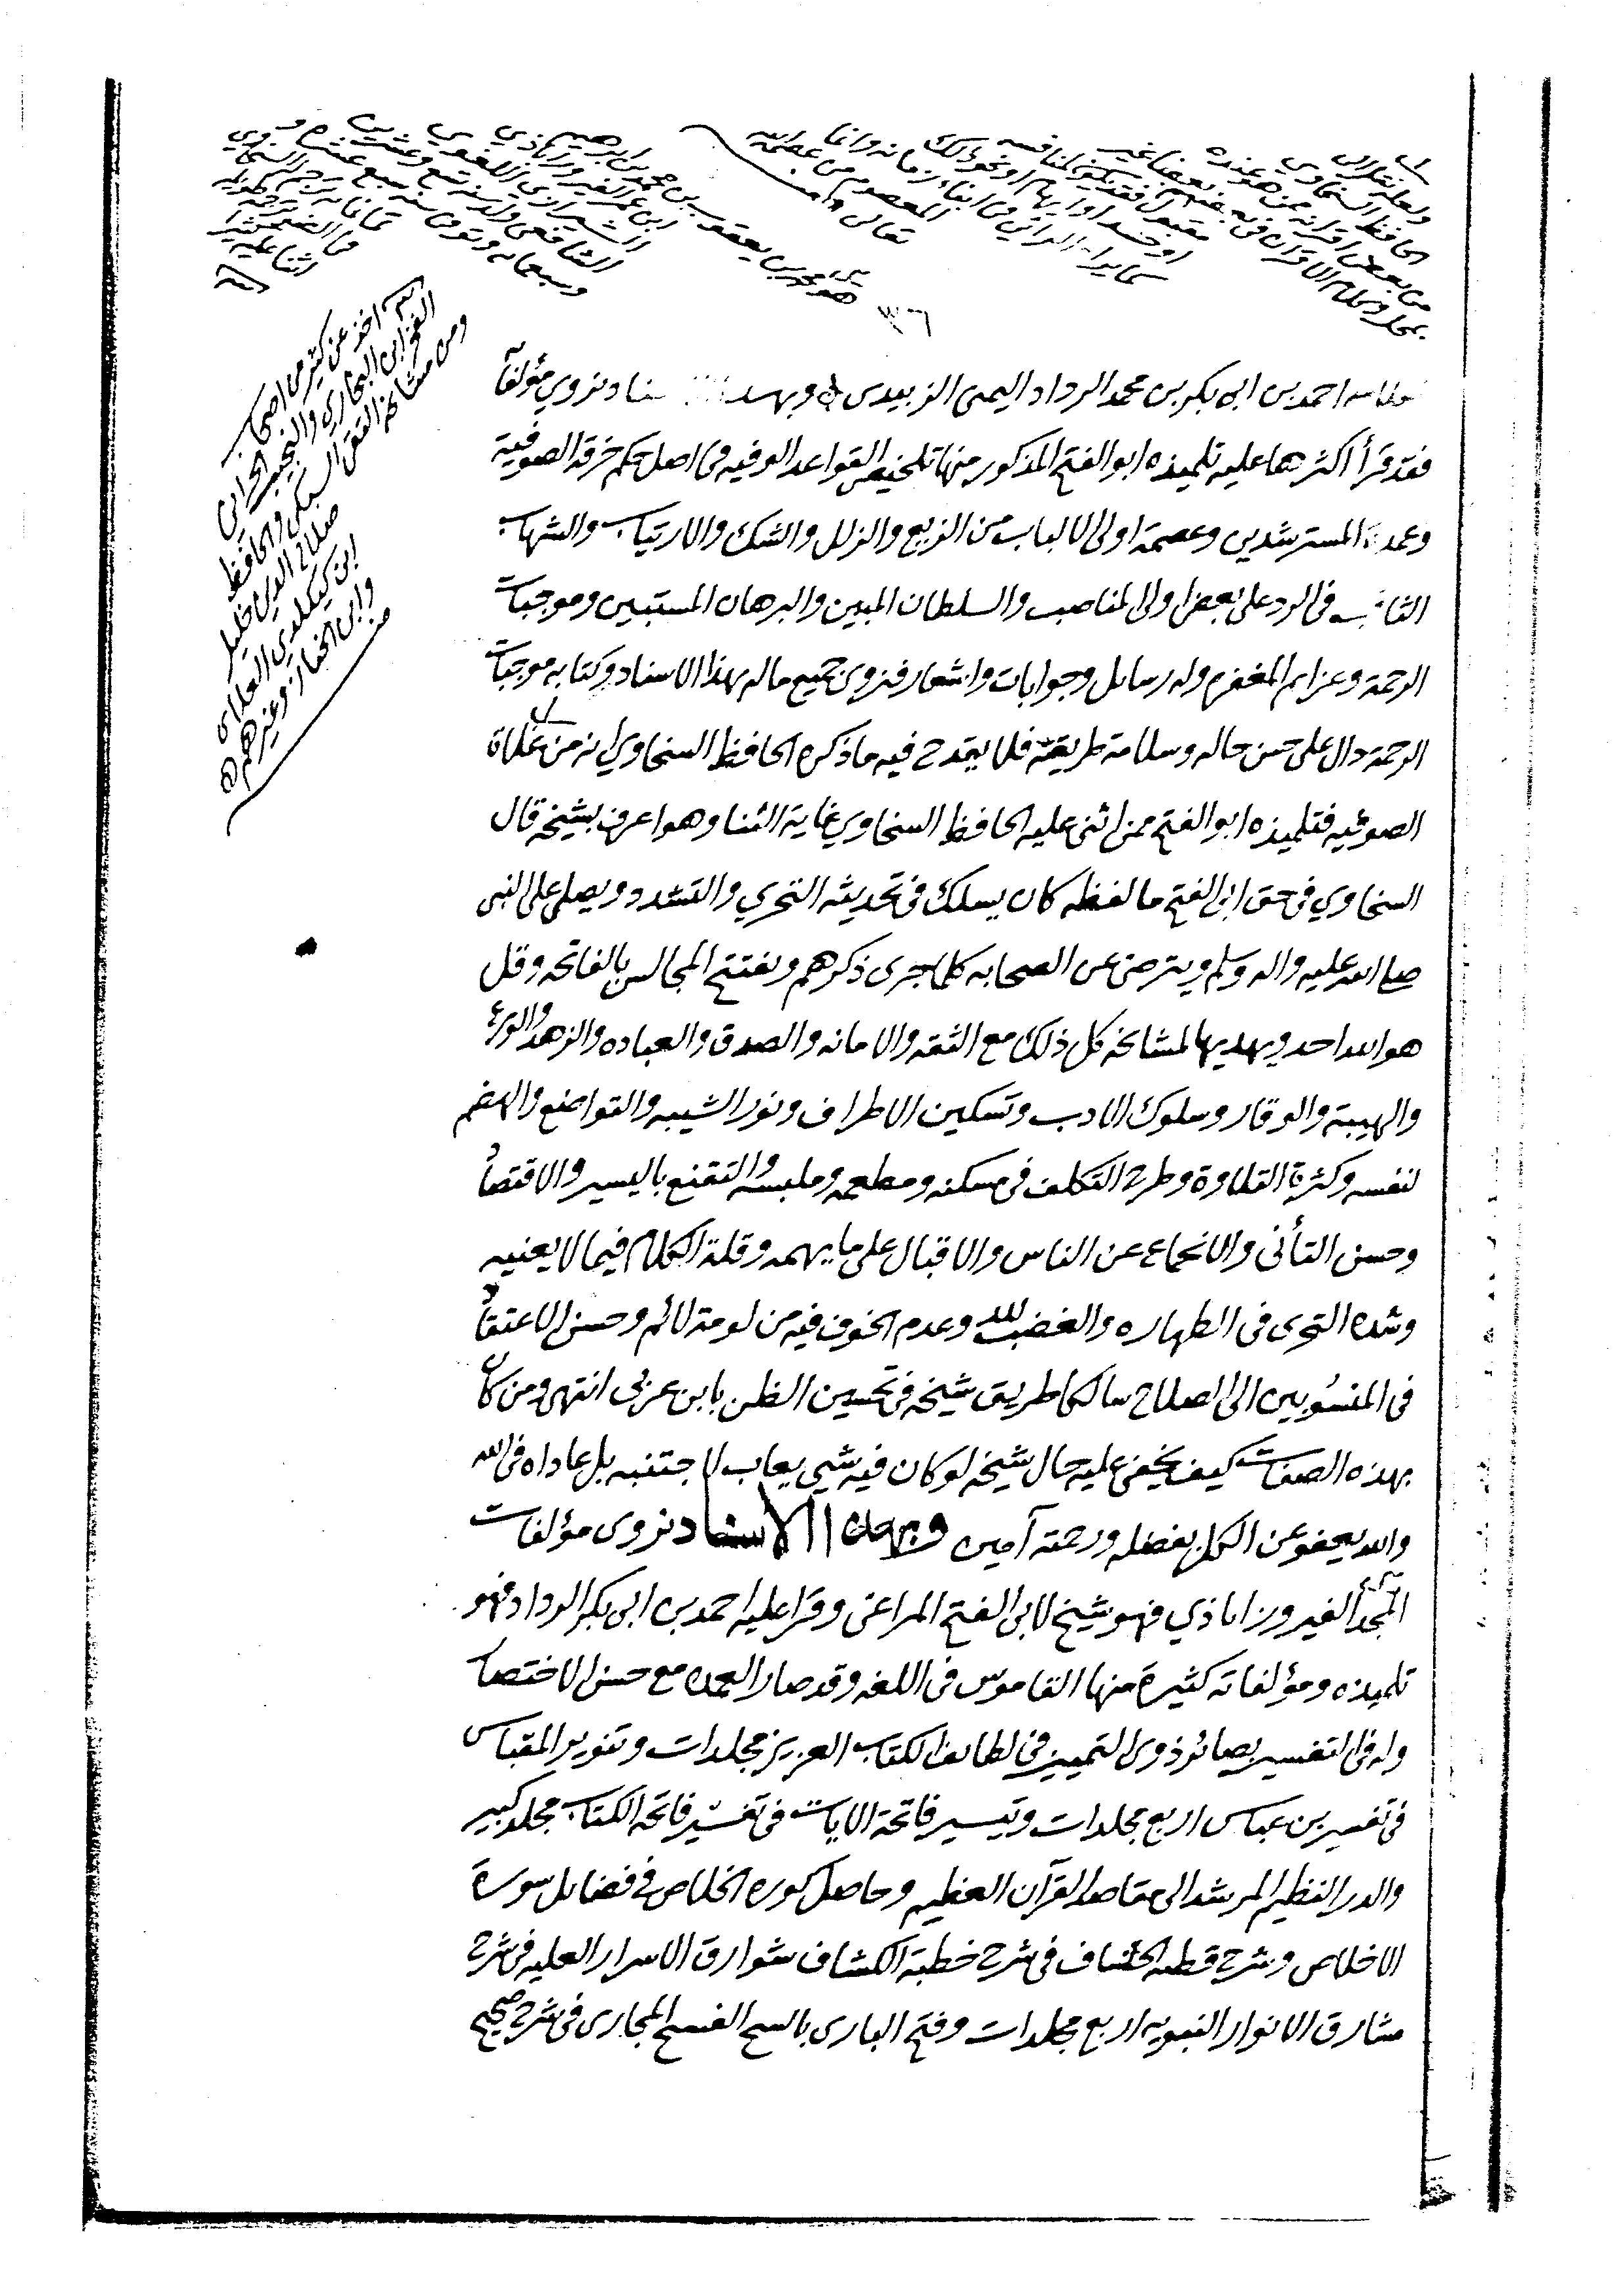 احمد بن ابي بكر بن محمد الرداد اليمنى الزبيدى وبهذا نروي مؤلفاً
فقد قرأ أكثرها عليه تلميذه ابو الفتح المذكور منها تلخيص القواعد الوفيه في اصل حكم خرقة الصوفية
وعمدة المسترشدين وعصمة اولى الالباب من الزيغ والزلل والشك والارتياب والشهاب
الثاقب في الرد على بعض اولى المناصب والسلطان المبين والبرهان المستبين وموجبات
الرحمة وعزايم المغفره وله رسايل وجوابات واشعار فنروى جميع ماله بهذا الاسناد وكتابه موجبات
الرحمة دال على حسن حاله وسلامة طريقته فلا يقدح فيه ما ذكره الحافظ السخاوي انه من غلاة
الصوفيه فتلميذه ابو الفتح ممن اثنى عليه الحافظ السخاوي غاية الثنا وهو اعرف بشيخه قال
السخاوي في حق ابي الفتح ما لفظه كان يسلك في تحديثه التحري والتشدد ويصلي على النبى
صلى الله عليه واله وسلم ويترضى عن الصحابه كلما جرى ذكرهم ويفتتح المجالس بالفاتحه وقل
هو الله احد ويهديها لمشايخه كل ذلك مع الثقه والامانه والصدق والعباده والزهد والورع
والهيبة والوقار وسلوك الادب وتسكين الاطراف ونور الشيبه والتواضع والهضم
لنفسه وكثرة التلاوة وطرح التكلف في مسكنه ومطعمه وملبسه والتقنع باليسير والاقتصاد
وحسن التأنى والانجماع عن الناس والاقبال على ما يهمه وقلة الكلام فيما لا يعنيه
وشدة التحرى في الطهاره والغضب لله وعدم الخوف فيه من لومة لائم وحسن الاعتقاد
في المنسوبين الى الصلاح سالكا طريق شيخه في تحسين الظن بابن عربى انتهى ومن كان
بهذه الصفات كيف يخفى عليه حال شيخه لو كان فيه شي يعاب لاجتنبه بل عاداه في الله
والله يعفو عن الكل بفضله ورحمته آمين وبهذا الاسناد نروى مؤلفات
المجد الفيروزاباذي فهو شيخ لابى الفتح المراغى وقرا عليه احمد بن ابى بكر الرداد فهو
تلميذه ومؤلفاته كثيرة منها القاموس في اللغه وقد صار العمده مع حسن الاختصار
وله في التفسير بصائر ذوى التمييز في لطايف الكتاب العزيز مجلدات وتنوير المقباس
في تفسير بن عباس اربع مجلدات وتيسير فاتحة الايات في تفسير فاتحة الكتاب مجلد كبير
والدر النظيم المرشد الى مقاصد القرآن العظيم وحاصل كورة الخلاص في فضايل سورة
الاخلاص وشرح قطبه الخشاف في شرح خطبة الكشاف شوارق الاسرار العليه في شرح
مشارق الانوار النبويه اربع مجلدات وفتح البارى بالسيح الفسيح المجارى في شرح صحيح
هو محمد بن يعقوب بن محمد بن ابرهيم
ابن عمر الفيروزاباذي
الشيرازي اللغوي
الشافعي ولد سنة تسع وعشرين
وسبعمايه وتوفي سنة سبع عشرة و
ثمانمايه ترجم له السخاوي
في الضوء ترجمه طويله
اثنا عليه كثيرا
اخذ عن كثير من اصحاب
الفخر ابن البخاري والنجيب الحراني
ومن مشايخه التقي السبكي والحافظ
صلاح الدين خليل
ابن كيكلدي العلاى
وابن الخباز وغيرهم